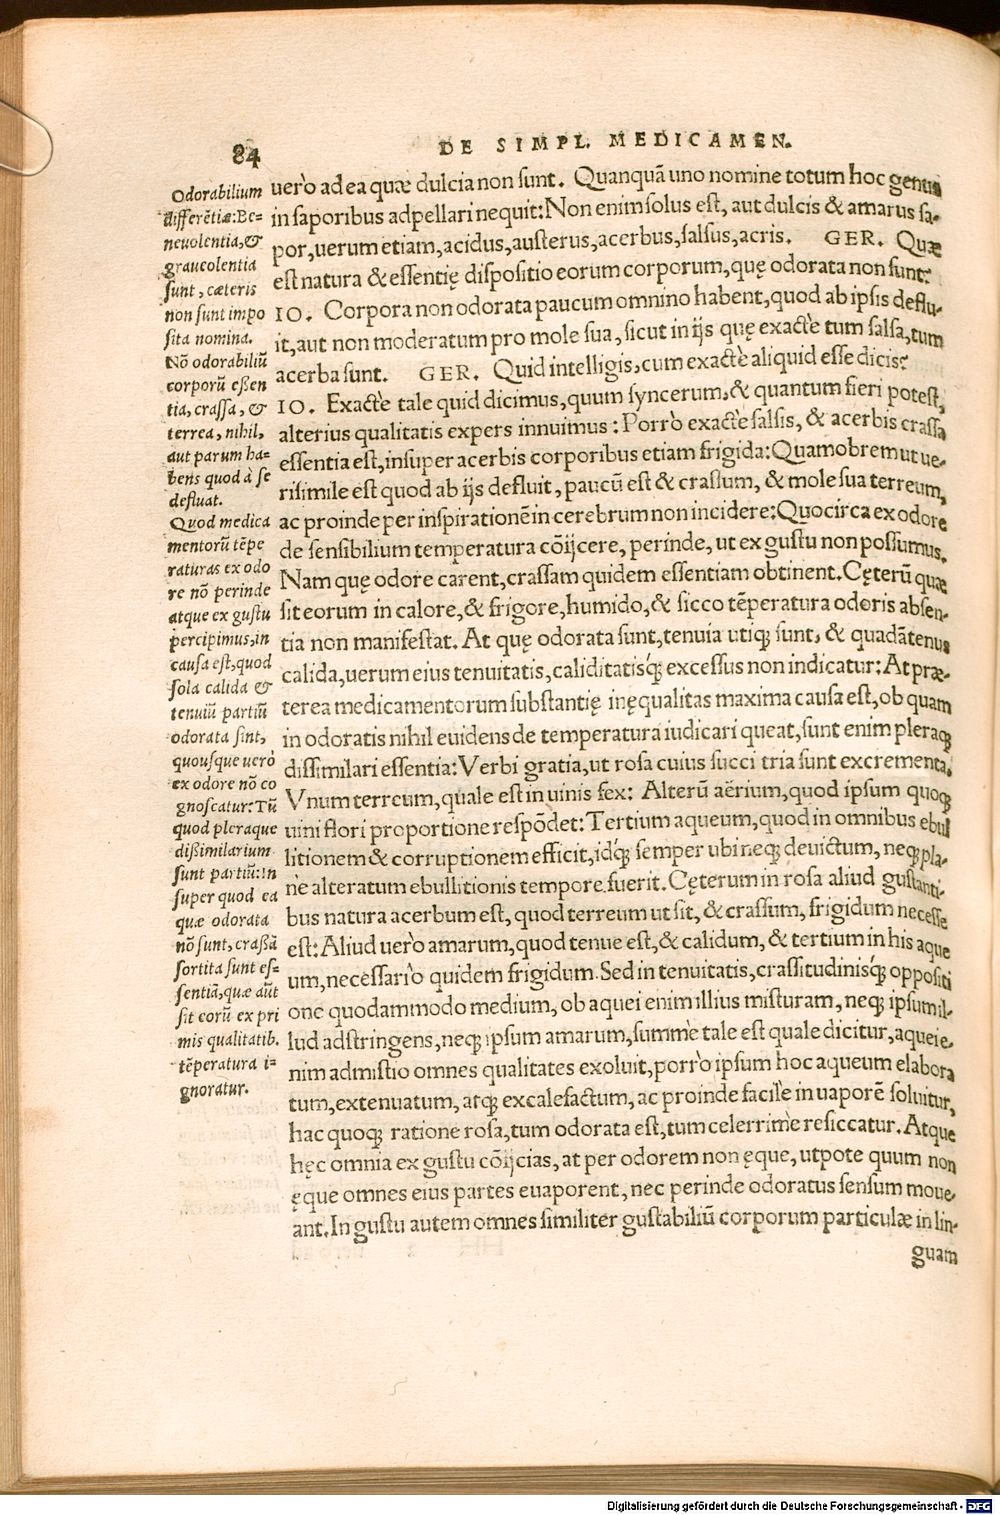 84
DE SIMPL. MEDICAMEN.
Odorabilium
differẽtiæ: Be-
neuolentia, &
graueolentia
sunt, cæteris
non sunt impo
sita nomina.
Nõ odorabiliũ
corporũ eßen
tia, crassa, &
terrea, nihil,
aut parum ha-
bens quod à se
defluat.
Quod medica
mentorũ tẽpe
raturas ex odo
re nõ perinde
atque ex gustu
percipimus, in
causa est, quod
sola calida &
tenuiũ partiũ
odorata sint,
quousque uerò
ex odore nõ co
gnoscatur: Tũ
quod pleraque
dißimilarium
sunt partiũ: In
super quod ea
quæ odorata
nõ sunt, craßã
sortita sunt es-
sentiã, quæ aũt
sit eorũ ex pri
mis qualitatib.
tẽperatura i-
gnoratur.
uerò ad ea quæ dulcia non sunt. Quanquã uno nomine totum hoc genus
in saporibus adpellari nequit: Non enim solus est, aut dulcis & amarus sa-
por, uerum etiam, acidus, austerus, acerbus, salsus, acris. GER. Quæ
est natura & essentię dispositio eorum corporum, quę odorata non sunt?
IO. Corpora non odorata paucum omnino habent, quod ab ipsis deflu-
it, aut non moderatum pro mole sua, sicut in ijs quę exactè tum salsa, tum
acerba sunt. GER. Quid intelligis, cum exactè aliquid esse dicis?
IO. Exactè tale quid dicimus, quum syncerum, & quantum fieri potest,
alterius qualitatis expers innuimus: Porrò exactè salsis, & acerbis crassa
essentia est, insuper acerbis corporibus etiam frigida: Quamobrem ut ue-
risimile est quod ab ijs defluit, paucũ est & crassum, & mole sua terreum,
ac proinde per inspirationẽ in cerebrum non incidere: Quocirca ex odore
de sensibilium temperatura cõijcere, perinde, ut ex gustu non possumus.
Nam quę odore carent, crassam quidem essentiam obtinent. Cęterũ quæ
sit eorum in calore, & frigore, humido, & sicco tẽperatura odoris absen-
tia non manifestat. At quę odorata sunt, tenuia utiq; sunt, & quadãtenus
calida, uerum eius tenuitatis, caliditatisq́; excessus non indicatur: At præ-
terea medicamentorum substantię inęqualitas maxima causa est, ob quam
in odoratis nihil euidens de temperatura iudicari queat, sunt enim pleraq;
dissimilari essentia: Verbi gratia, ut rosa cuius succi tria sunt excrementa,
Vnum terreum, quale est in uinis fex: Alterũ aërium, quod ipsum quoq;
uini flori proportione respõdet: Tertium aqueum, quod in omnibus ebul
litionem & corruptionem efficit, idq́; semper ubi neq; deuictum, neq; pla-
ne alteratum ebullitionis tempore fuerit. Cęterum in rosa aliud gustanti-
bus natura acerbum est, quod terreum ut sit, & crassum, frigidum necesse
est: Aliud uerò amarum, quod tenue est, & calidum, & tertium in his aque
um, necessariò quidem frigidum. Sed in tenuitatis, crassitudinisq́; oppositi
one quodammodo medium, ob aquei enim illius misturam, neq; ipsum il-
lud adstringens, neq; ipsum amarum, summè tale est quale dicitur, aquei e-
nim admistio omnes qualitates exoluit, porrò ipsum hoc aqueum elabora
tum, extenuatum, atq; excalefactum, ac proinde facilè in uaporẽ soluitur,
hac quoq; ratione rosa, tum odorata est, tum celerrimè resiccatur. Atque
hęc omnia ex gustu cõijcias, at per odorem non ęque, utpote quum non
ęque omnes eius partes euaporent, nec perinde odoratus sensum moue-
ant. In gustu autem omnes similiter gustabiliũ corporum particulæ in lin-
guam
Digitalisierung gefördert durch die Deutsche Forschungsgemeinschaft - DFG